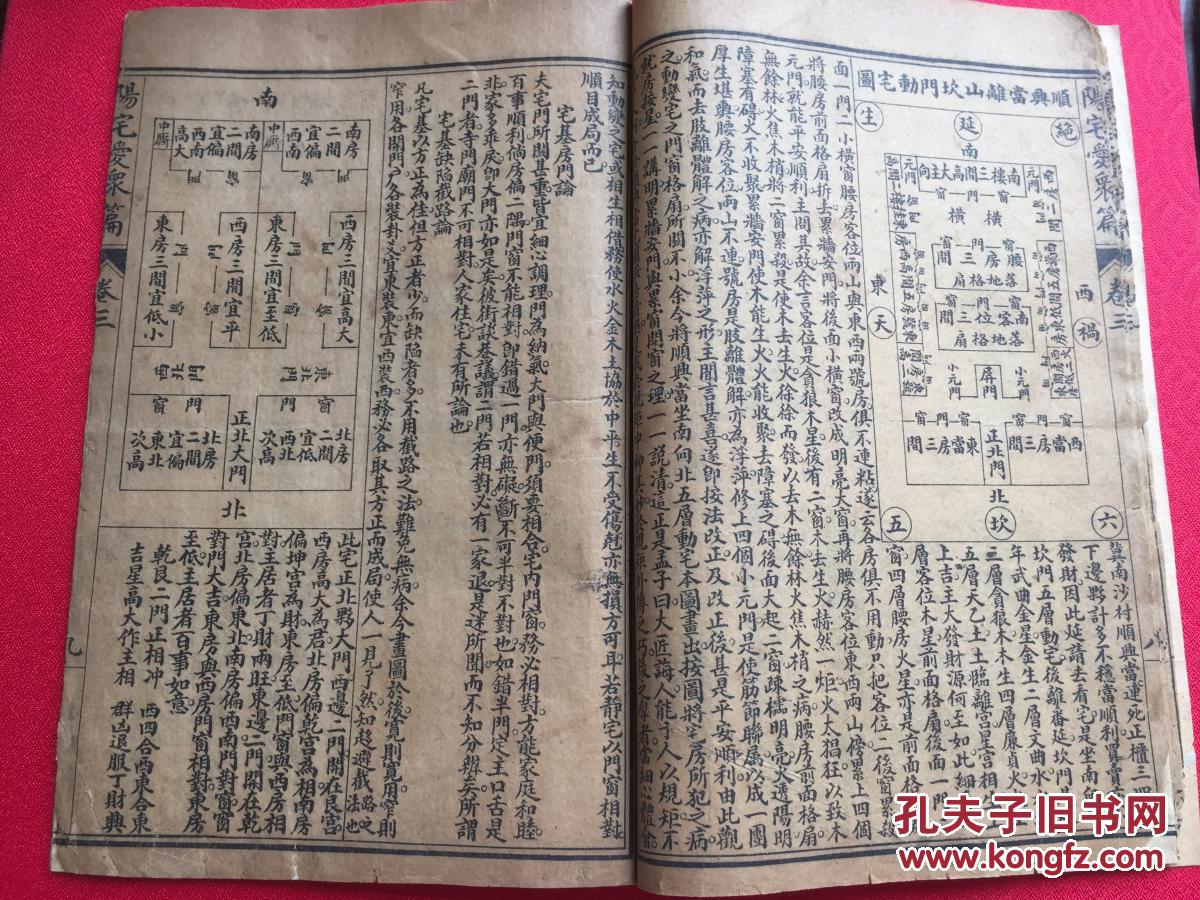 順興當離山坎門動宅圖
生
延
絕
南
東
西
天
禍
五
坎
六
北
正北門
屏門
小元門
小元門
面一門二小橫窗腰房客位兩山與東西兩號房俱不連粘遂云各房俱不用動只把客位一後窗累殺
將腰房前面格扇拆去累牆安門將後面小橫窗改成明亮大窗再將腰房客位東西兩山傍累上四個
元門就能平安順利主問其故余言客位是貪狼木星後有二窗木去生火赫然一炬火太猖狂以致木
無餘林火焦木梢將二窗累殺是使木去生火徐徐而發以去木無餘林火焦木梢之病腰房前面格扇
障塞有礙火不收聚累牆安門使木能生火火能收聚去障塞之礙後面大起二窗疎櫺明亮大透陽明
厚生堪輿腰房客位兩山不連號房是肢離體解亦為浮萍修上四個小元門是使筋節聯屬以成一團
和氣而去肢離體解之病亦解浮萍之形主聞言甚喜遂即按法改正及改正後甚是平安順利由此觀
之動變宅之門窗格扇所關不小余今將順興當坐南向北五層動宅本圖畫出按圖將宅房所犯之病
就房按星一一講明累牆安門與累窗開窗之理一一說清這正是孟子曰大匠誨人能予人以規矩不
冀南沙村順興當連死正櫃三四
下邊夥計多不穩當順利買賣
發財因此延請去看宅是坐南
坎門五層動宅後離番延坎門
年武曲金星金生二層文曲水
三層貪狼木木生四層廉貞火
五層天乙土土臨離宮星宮相生
上吉星主大發財源何至如此細
層客位木星前面格扇後面一門
窗四層腰房火星亦是前面格
陽宅愛眾篇
卷三
知動變之宅或相生相借務使水火金木土協於中平生不受傷尅亦無損方可耳若靜宅以門窗相對
順目成局而已
宅基房門論
夫宅門所關甚重皆宜細心調理門為納氣大門與便門須要相合宅內門窗務必相對方能家庭和睦
百事順利倘房偏二隅門窗不能相對即錯過一門亦無礙斷不可半對不對也如錯半門定主口舌是
非家多乖戾即大門亦如是矣彼街談巷議謂二門若相對必有一家退是迷所聞而不知分辨矣所謂
二門者寺門廟門不可相對人家住宅未有所論也
宅基缺陷截路論
凡宅基以方正為佳但方正者少而缺陷者多不用截路之法難免無病余今畫圖於後寬則寬用窄則
窄用各開門戶各裝卦爻宜東裝東宜西裝西務必各取其方正而成局使人一見了然知趨避截路之
法也
南
南房二間宜偏西南
中廳
南房二間宜偏西南高大
中廳
西房三間宜高大
東房三間宜至低
西房三間宜平
東房三間宜低小
東北門
西北門
正北大門
北房二間宜低西北次高
北房二間宜偏東北次高
北
此宅正北夥大門西邊二門開在艮宮
西房高大為君北房偏乾宮為相南房
偏坤宮為財東房至低門窗與西房相
對主居者丁財兩旺東邊二門開在乾
宮北房偏東北南房偏西南門對窗
對門大吉東房與西房門窗相對東房
至低主居者百事如意
乾艮二門正相冲　西四合西東合東
吉星高大作主相　群凶退服丁財興
陽宅愛眾篇
卷三
九
孔夫子旧书网
www.kongfz.com